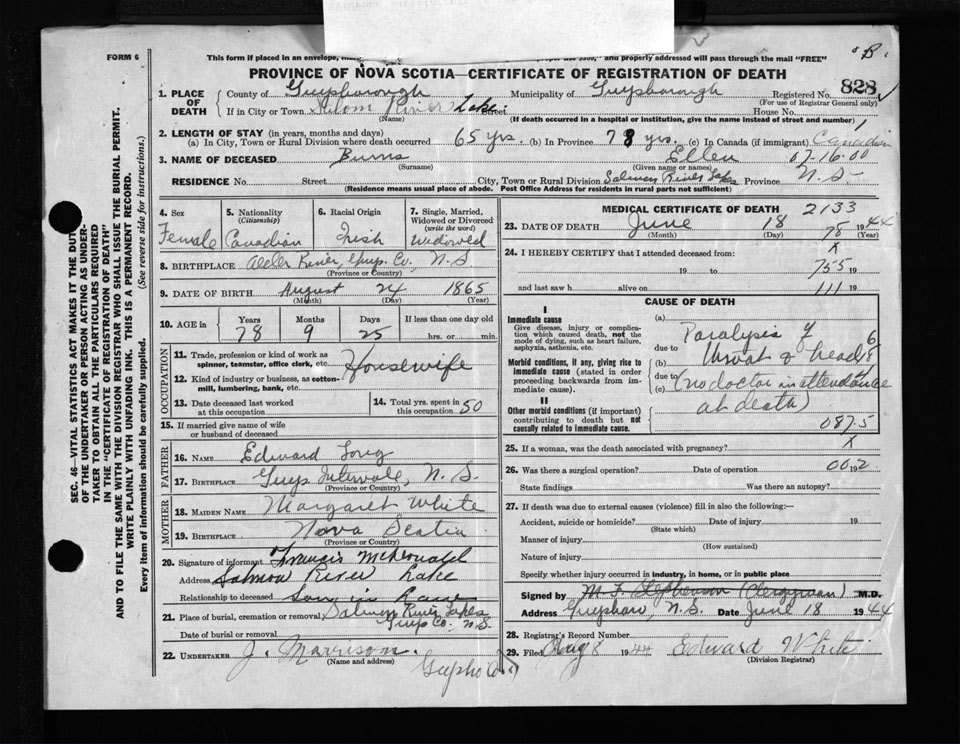 FORM 6
This form if placed in an envelope, and properly addressed will pass through the mail "FREE"
"B"
PROVINCE OF NOVA SCOTIA—CERTIFICATE OF REGISTRATION OF DEATH
1. PLACE OF DEATH County of Guysborough Municipality of Guysborough Registered No. 828
(For use of Registrar General only)
If in City or Town River Lake Street House No.
(Name) (If death occurred in a hospital or institution, give the name instead of street and number)
2. LENGTH OF STAY (in years, months and days)
(a) In City, Town or Rural Division where death occurred 65 yrs. (b) In Province 78 yrs. (c) In Canada (if immigrant) Canadian
3. NAME OF DECEASED Burns Ellen 07-16-00
(Surname) (Given name or names)
RESIDENCE No. Street City, Town or Rural Division Salmon River Lake Province N.S.
(Residence means usual place of abode. Post Office Address for residents in rural parts not sufficient)
4. Sex Female
5. Nationality (Citizenship) Canadian
6. Racial Origin Irish
7. Single, Married, Widowed or Divorced (write the word) Widowed
8. BIRTHPLACE River, Guys. Co., N.S
(Province or Country)
9. DATE OF BIRTH August 24 1865
(Month) (Day) (Year)
10. AGE in Years 78 Months 9 Days 25 If less than one day old hrs. or min.
OCCUPATION
11. Trade, profession or kind of work as spinner, teamster, office clerk, etc. Housewife
12. Kind of industry or business, as cotton-mill, lumbering, bank, etc.
13. Date deceased last worked at this occupation
14. Total yrs. spent in this occupation 50
15. If married give name of wife or husband of deceased
FATHER
16. NAME Edward Long
17. BIRTHPLACE Guys Intervale, N.S.
(Province or Country)
MOTHER
18. MAIDEN NAME Margaret White
19. BIRTHPLACE Nova Scotia
(Province or Country)
20. Signature of informant Francis McDonald
Address Salmon River Lake
Relationship to deceased Son in Law
21. Place of burial, cremation or removal Salmon River Lake
Guys Co. N.S.
Date of burial or removal
22. UNDERTAKER J. Morrison.
(Name and address)
MEDICAL CERTIFICATE OF DEATH 2133
23. DATE OF DEATH June 18 1944
(Month) (Day) (Year)
78
24. I HEREBY CERTIFY that I attended deceased from: X
19 to 755 19
and last saw h alive on 111 19
CAUSE OF DEATH
I
Immediate cause
Give disease, injury or complication which caused death, not the mode of dying, such as heart failure, asphyxia, asthenia, etc.
Morbid conditions, if any, giving rise to immediate cause (stated in order proceeding backwards from immediate cause).
II
Other morbid conditions (if important) contributing to death but not causally related to immediate cause.
(a) Paralysis of
due to
(b) throat & head
due to
(c) (no doctor in attendance
at death)
087.5
25. If a woman, was the death associated with pregnancy? X
26. Was there a surgical operation? Date of operation 00 19 2
State findings Was there an autopsy?
27. If death was due to external causes (violence) fill in also the following:—
Accident, suicide or homicide? Date of injury 19
(State which)
Manner of injury
(How sustained)
Nature of injury
Specify whether injury occurred in industry, in home, or in public place
Signed by M. T. Stephenson (Clergyman) M.D.
Address N.S. Date June 18 1944
28. Registrar's Record Number
29. Filed Aug 8 1944 Edward White
(Division Registrar)
SEC. 46—VITAL STATISTICS ACT MAKES IT THE DUTY
OF THE UNDERTAKER OR PERSON ACTING AS UNDERTAKER TO OBTAIN ALL THE PARTICULARS REQUIRED
IN THE "CERTIFICATE OF REGISTRATION OF DEATH"
AND TO FILE THE SAME WITH THE DIVISION REGISTRAR WHO SHALL ISSUE THE BURIAL PERMIT.
WRITE PLAINLY WITH UNFADING INK. THIS IS A PERMANENT RECORD.
Every item of information should be carefully supplied. (See reverse side for instructions.)